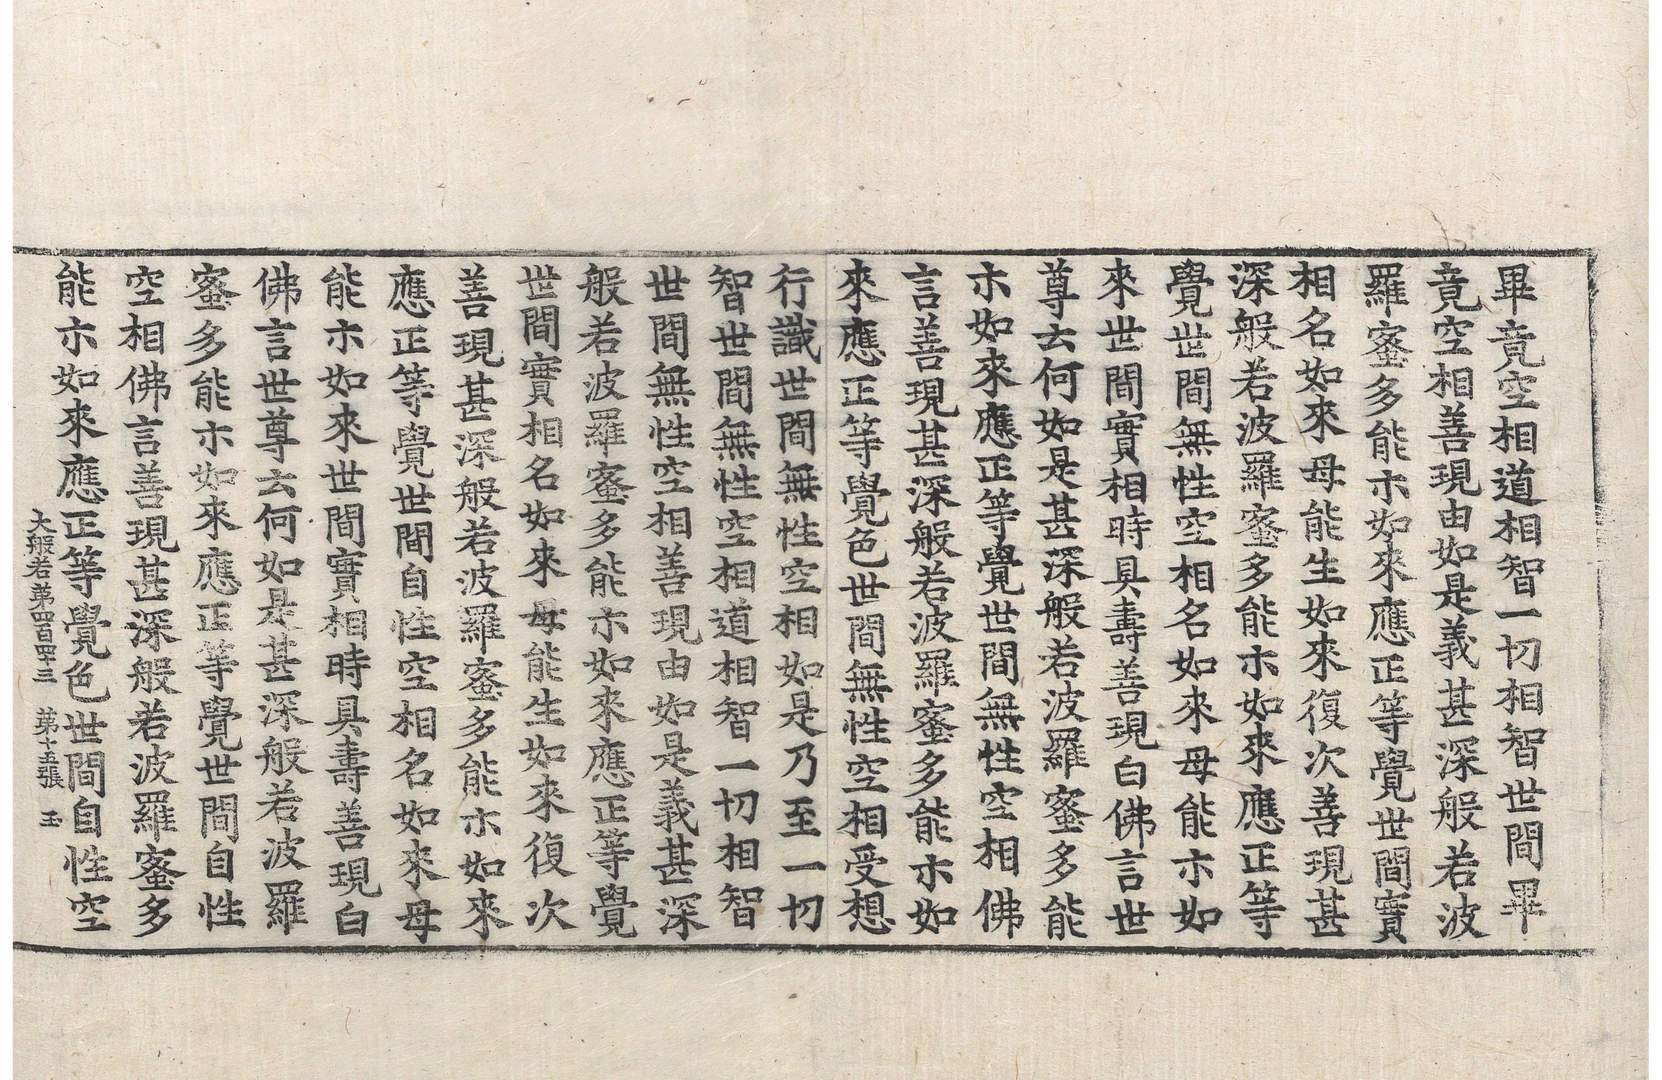 畢竟空相道相智一切相智世間畢
竟空相善現由如是義甚深般若波
羅蜜多能示如來應正等覺世間實
相名如來母能生如來復次善現甚
深般若波羅蜜多能示如來應正等
覺世間無性空相名如來母能示如
來世間實相時具壽善現白佛言世
尊云何如是甚深般若波羅蜜多能
示如來應正等覺世間無性空相佛
言善現甚深般若波羅蜜多能示如
來應正等覺色世間無性空相受想
行識世間無性空相如是乃至一切
智世間無性空相道相智一切相智
世間無性空相善現由如是義甚深
般若波羅蜜多能示如來應正等覺
世間實相名如來母能生如來復次
善現甚深般若波羅蜜多能示如來
應正等覺世間自性空相名如來母
能示如來世間實相時具壽善現白
佛言世尊云何如是甚深般若波羅
蜜多能示如來應正等覺世間自性
空相佛言善現甚深般若波羅蜜多
能示如來應正等覺色世間自性空
大般若苐四百四十三 苐十五張 玉